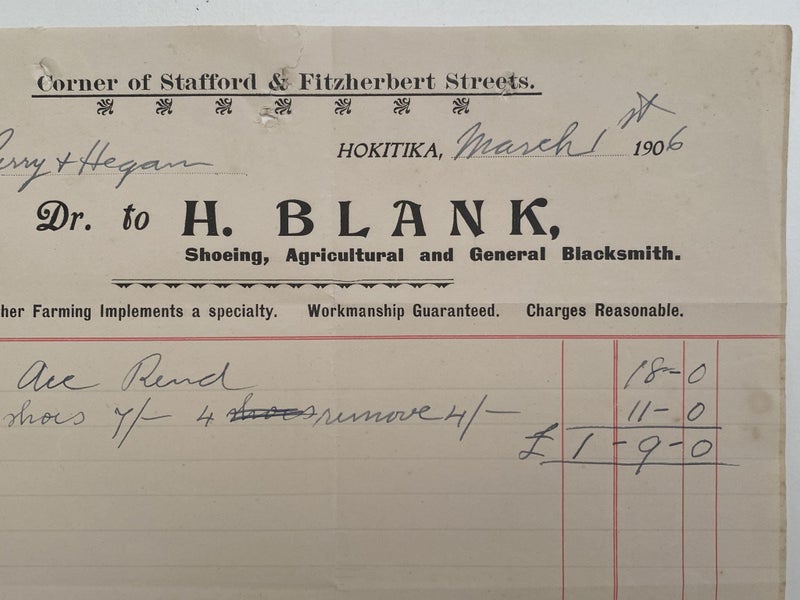 Corner of Stafford & Fitzherbert Streets.
& Hegam HOKITIKA, March 1st 1906
Dr. to H. BLANK,
Shoeing, Agricultural and General Blacksmith.
her Farming Implements a specialty. Workmanship Guaranteed. Charges Reasonable.
Acc Rend 18-0
shoes 7/- 4 shoes remove 4/- 11-0
£1-9-0